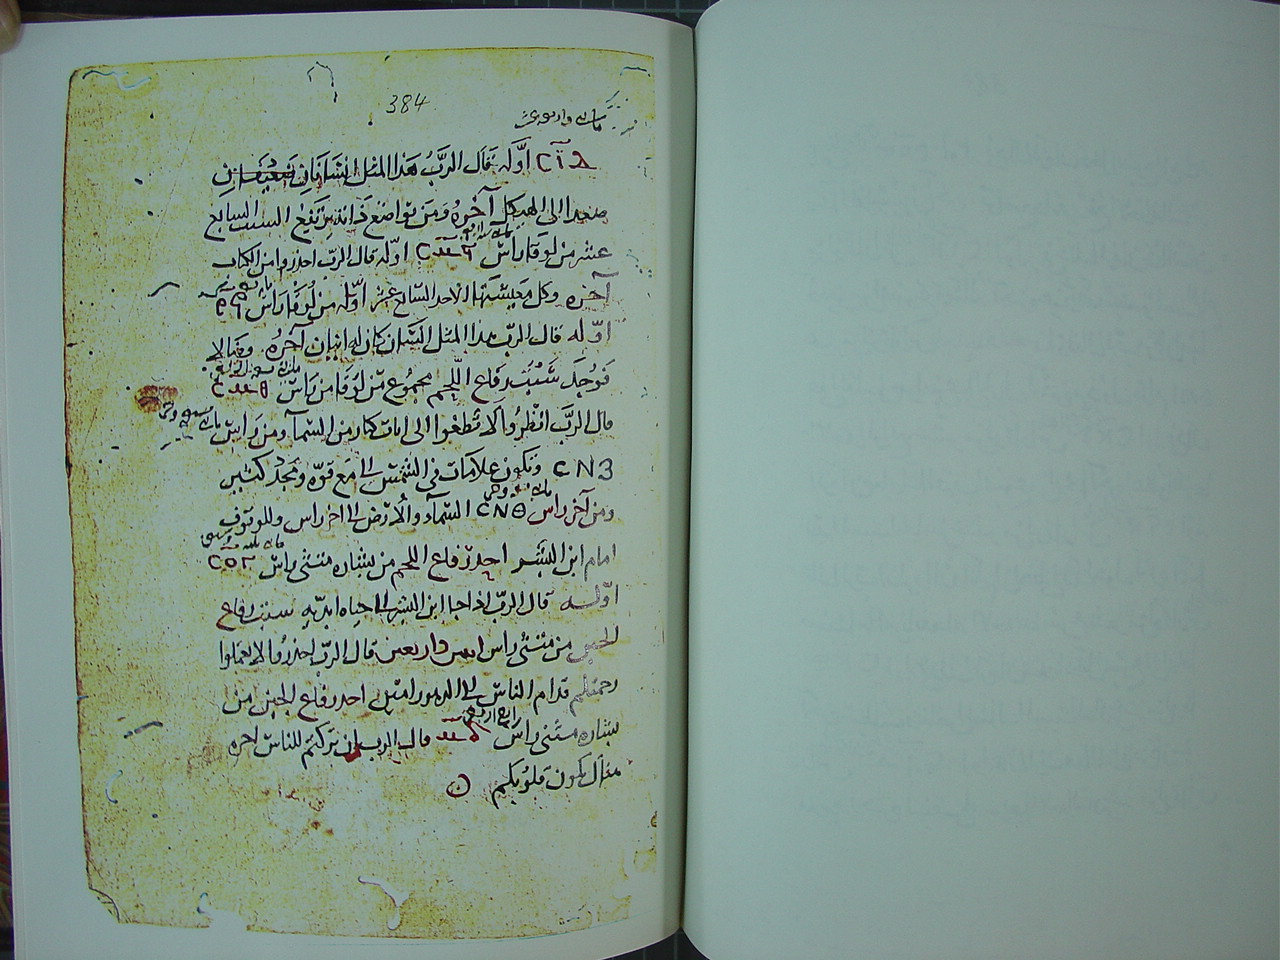 384
مايتين واربعه عشر
CIΔ اوّله قال الربّ هذا المثل انسانان
صعدا الى الهيكل آخره ومن تواضع ذاته يرتفع السبت السابع
عشر من لوقا راس اوّله قال الربّ احذروا من الكتاب
آخره وكل معيشتها الاحد السابع عشر اوّله من لوقا راس
اوّله قال الربّ هذا المثل انسان كان له ابنان آخره وضالا
فوجد سبت رفاع اللحم مجموع من لوقا من راس
قال الربّ انظروا لا تطغوا الى ايات كبار من السمآ ومن راس
CNS وتكون علامات في الشمس الى مع قوّه ومجد كثير
ومن آخر راس CNΘ السمآ والارض الى اخر راس وللوقوف
امام ابن البشر احد رفاع اللحم من بشاره متى راس
اوّله قال الربّ اذا جا ابن البشر الى حياه ابديه سبت رفاع
الجبن من متى راس اثنين واربعين قال الربّ احذروا لا تعملوا
رحمتكم قدام الناس الى احد رفاع الجبن من
بشاره متى راس قال الرب ان تركتم للناس اخره
هناك تكون قلوبكم